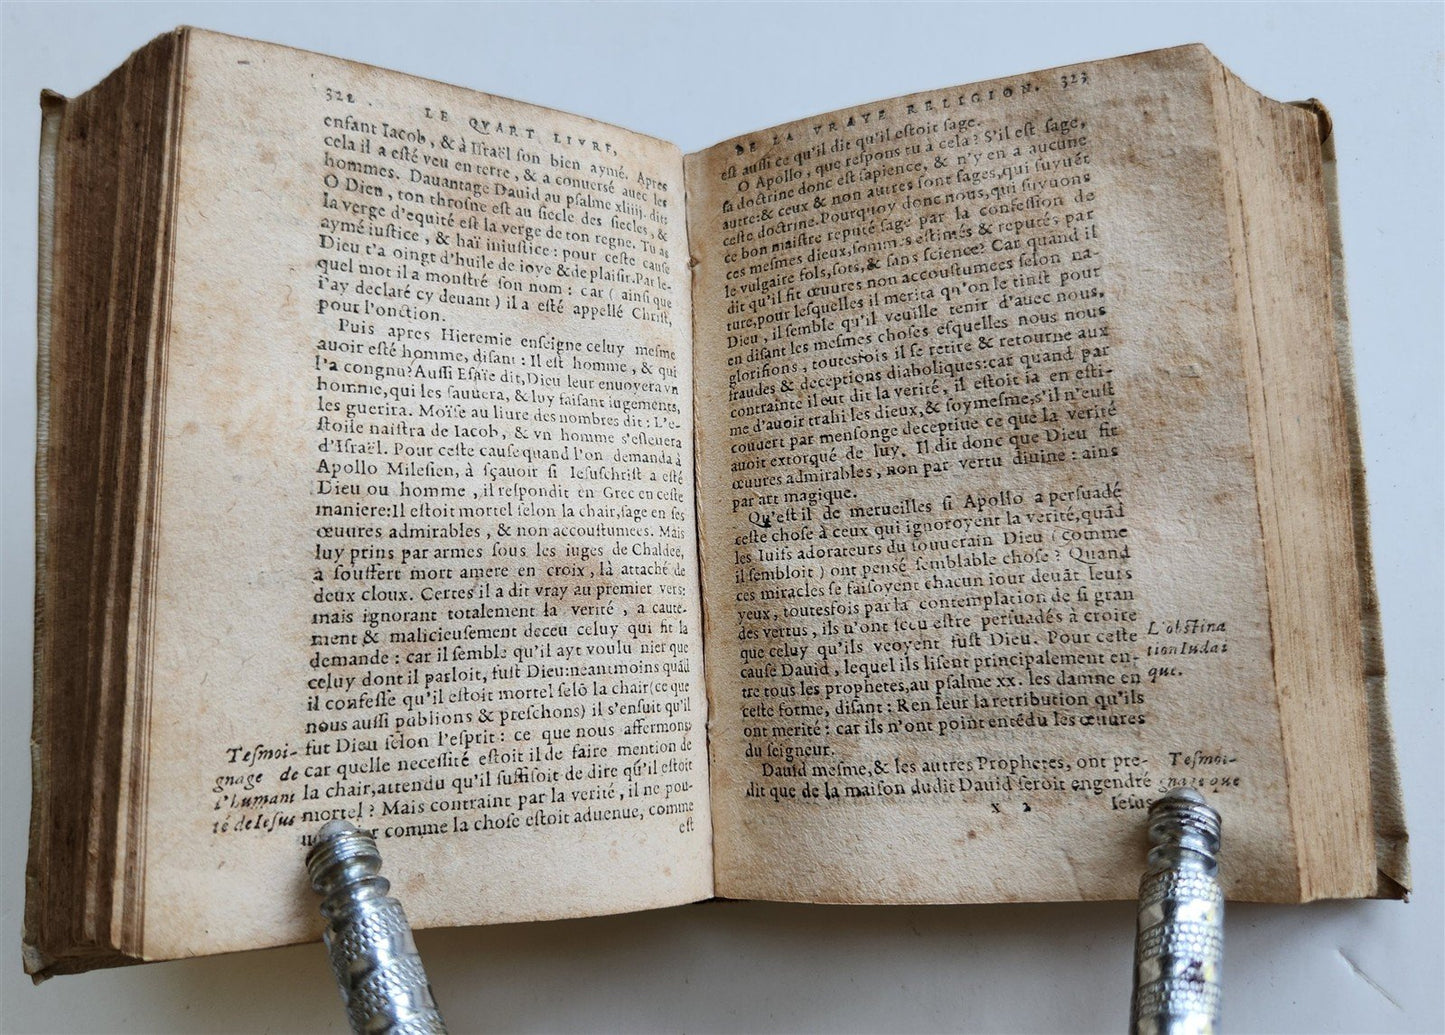 322. LE QVART LIVRE,
enfant Iacob, & à Iſraël ſon bien aymé. Apres
cela il a eſté veu en terre, & a conuersé auec les
hommes. Dauantage Dauid au pſalme xliiij. dit:
O Dieu, ton throſne eſt au ſiecle des ſiecles, &
la verge d'equité eſt la verge de ton regne. Tu as
aymé iuſtice, & haï iniuſtice: pour ceſte cauſe
Dieu t'a oingt d'huile de ioye & de plaiſir. Par le-
quel mot il a monſtré ſon nom: car (ainſi que
i'ay declaré cy deuant) il a eſté appellé Chriſt,
pour l'onction.
Puis apres Hieremie enſeigne celuy meſme
auoir eſté homme, diſant: Il eſt homme, & qui
l'a congnu? Auſſi Eſaïe dit, Dieu leur enuoyera vn
homme, qui les ſauuera, & luy faiſant iugements,
les guerira. Moïſe au liure des nombres dit: L'e-
ſtoile naiſtra de Iacob, & vn homme s'eſleuera
d'Iſraël. Pour ceſte cauſe quand l'on demanda à
Apollo Mileſien, à ſçauoir ſi Ieſuschriſt a eſté
Dieu ou homme, il reſpondit en Grec en ceſte
maniere: Il eſtoit mortel ſelon la chair, ſage en ſes
œuures admirables, & non accouſtumees. Mais
luy prins par armes ſous les iuges de Chaldee,
a ſouffert mort amere en croix, là attaché de
deux cloux. Certes il a dit vray au premier vers:
mais ignorant totalement la verité, a caute-
ment & malicieuſement deceu celuy qui fit la
demande: car il ſemble qu'il ayt voulu nier que
celuy dont il parloit, fuſt Dieu: neantmoins quãd
il confeſſe qu'il eſtoit mortel ſelõ la chair (ce que
nous auſſi publions & preſchons) il s'enſuit qu'il
fut Dieu ſelon l'eſprit: ce que nous affermons:
car quelle neceſſité eſtoit il de faire mention de
la chair, attendu qu'il ſuffiſoit de dire qu'il eſtoit
mortel? Mais contraint par la verité, il ne pou-
comme la choſe eſtoit aduenue, comme
eſt
Teſmoi-
gnage de
l'humani
té de Ieſus
DE LA VRAYE RELIGION. 323
eſt auſſi ce qu'il dit qu'il eſtoit ſage.
O Apollo, que reſpons tu à cela? S'il eſt ſage,
ſa doctrine donc eſt ſapience, & n'y en a aucune
autre: & ceux & non autres ſont ſages, qui ſuyuẽt
ceſte doctrine. Pourquoy donc nous, qui ſuyuons
ce bon maiſtre reputé ſage par la confeſſion de
ces meſmes dieux, ſommes eſtimés & reputés par
le vulgaire fols, ſots, & ſans ſcience? Car quand il
dit qu'il fit œuures non accouſtumees ſelon na-
ture, pour leſquelles il merita qu'on le tinſt pour
Dieu, il ſemble qu'il veuille tenir d'auec nous,
en diſant les meſmes choſes eſquelles nous nous
glorifions, toutesfois il ſe retire & retourne aux
fraudes & deceptions diaboliques: car quand par
contrainte il eut dit la verité, il eſtoit ia en eſti-
me d'auoir trahi les dieux, & ſoymeſme, s'il n'euſt
couuert par menſonge deceptiue ce que la verité
auoit extorqué de luy. Il dit donc que Dieu fit
œuures admirables, non par vertu diuine: ains
par art magique.
Qu'eſt il de merueilles ſi Apollo a perſuadé
ceſte choſe à ceux qui ignoroyent la verité, quãd
les Iuifs adorateurs du ſouuerain Dieu (comme
il ſembloit) ont pensé ſemblable choſe? Quand
ces miracles ſe faiſoyent chacun iour deuãt leurs
yeux, toutesfois par la contemplation de ſi gran
des vertus, ils n'ont ſceu eſtre perſuadés à croire
que celuy qu'ils veoyent fuſt Dieu. Pour ceſte
cauſe Dauid, lequel ils liſent principalement en-
tre tous les prophetes, au pſalme xx. les damne en
ceſte forme, diſant: Ren leur la retribution qu'ils
ont merité: car ils n'ont point entẽdu les œuures
du ſeigneur.
Dauid meſme, & les autres Prophetes, ont pre-
dit que de la maiſon dudit Dauid ſeroit engendré
x 2 Ieſus
L'obſtina
tion Iudai
que.
Teſmoi-
gnage que